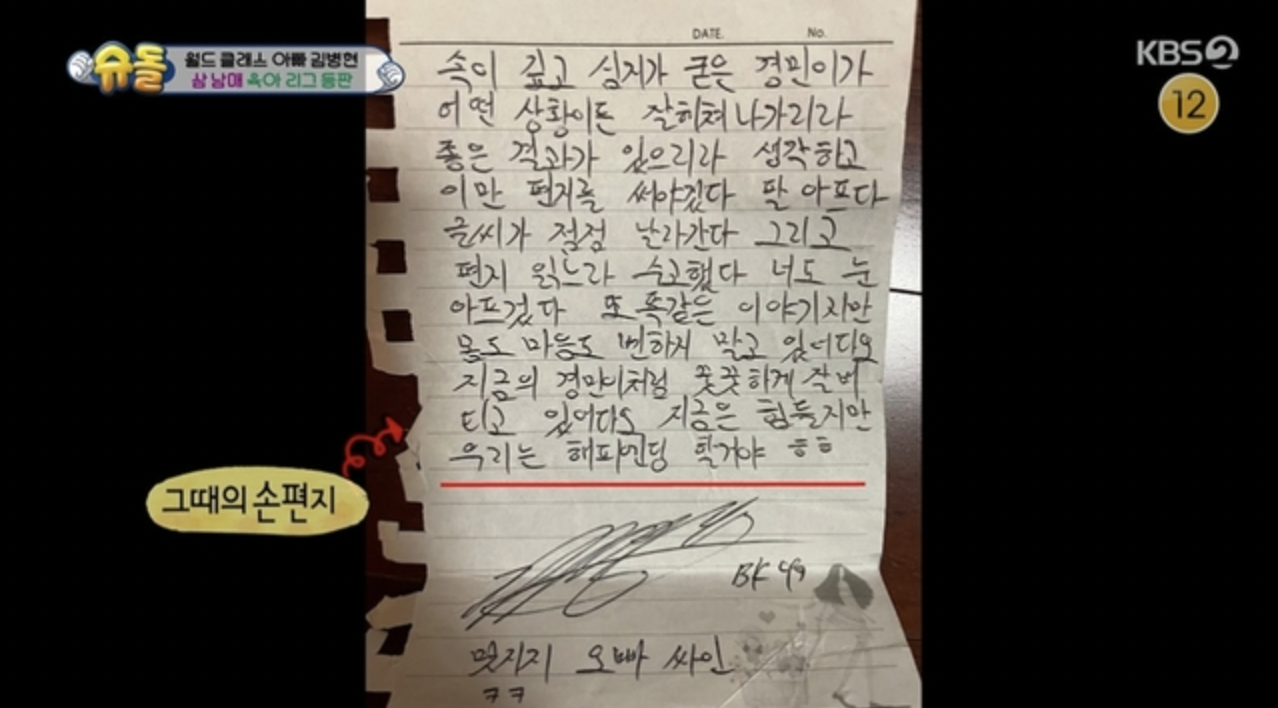 슈돌
월드 클래스 아빠 김병현
삼 남매 육아 리그 등판
KBS 2
12
DATE. No.
속이 깊고 심지가 굳은 경민이가
어떤 상황이든 잘헤쳐나가리라
좋은 결과가 있으리라 생각하고
이만 편지를 써야겠다 팔 아프다
글씨가 점점 날라간다 그리고
편지 읽느라 수고했다 너도 눈
아프겠다 또 똑같은 이야기지만
몸도 마음도 변하지 말고 있어다오
지금의 경민이처럼 꿋꿋하게 잘버
티고 있어다오 지금은 힘들지만
우리는 해피엔딩 할거야 ㅎㅎ
그때의 손편지
BK 49
멋지지 오빠 싸인
ㅋㅋ